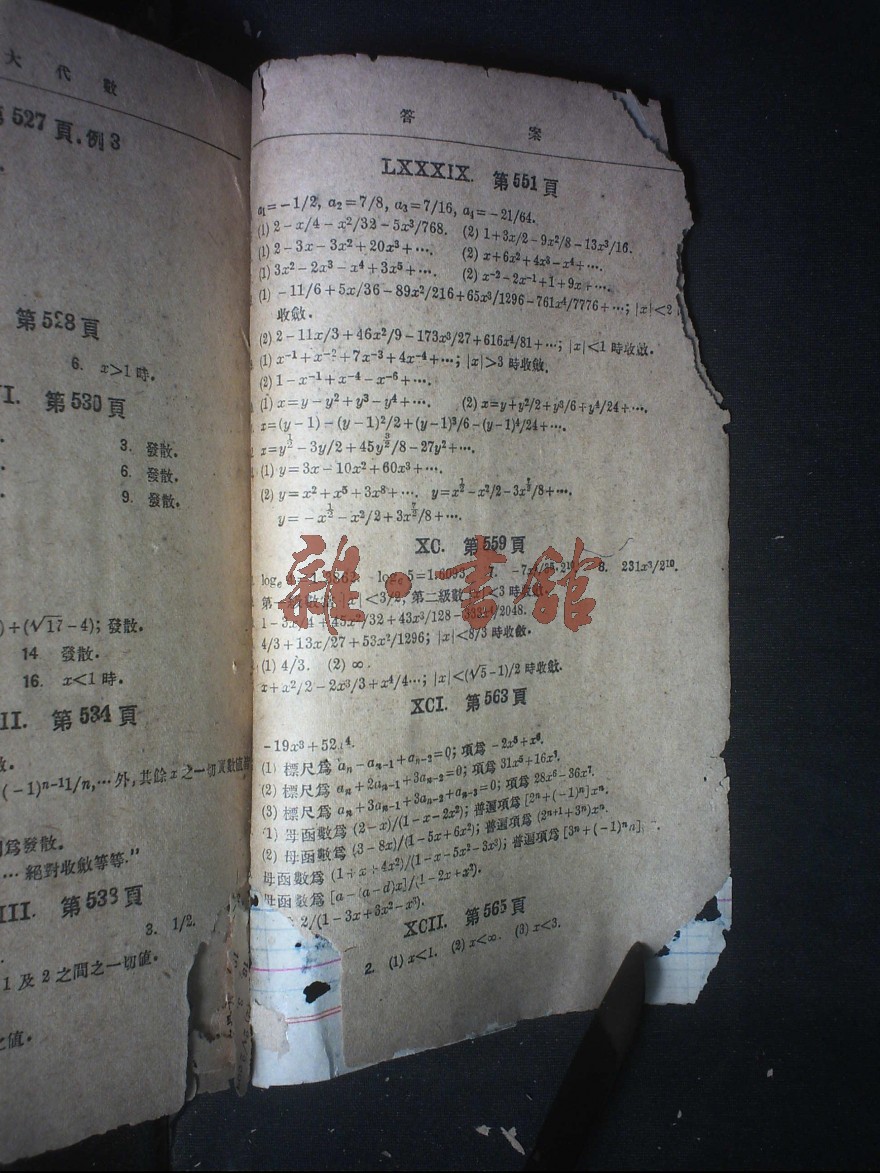 大 代 數
527 頁．例 3
第 528 頁
6. x>1 時．
I. 第 530 頁
3. 發散．
6. 發散．
9. 發散．
)+(√17-4); 發散．
14 發散．
16. x<1 時．
II. 第 534 頁
(-1)ⁿ⁻¹1/n,… 外, 其餘 x 之一切
爲發散．
… 絕對收斂等等．"
III. 第 533 頁
3. 1/2.
1 及 2 之間之一切値．
値．
答 案
LXXXIX. 第 551 頁
a₁=-1/2, a₂=7/8, a₃=7/16, a₄=-21/64.
(1) 2-x/4-x²/32-5x³/768. (2) 1+3x/2-9x²/8-13x³/16.
(1) 2-3x-3x²+20x³+…. (2) x+6x²+4x³-x⁴+….
(1) 3x²-2x³-x⁴+3x⁵+…. (2) x⁻³-2x⁻¹+1+9x+….
(1) -11/6+5x/36-89x²/216+65x³/1296-761x⁴/7776+…; |x|<2
收斂．
(2) 2-11x/3+46x²/9-173x³/27+616x⁴/81+…; |x|<1 時收斂．
(1) x⁻¹+x⁻²+7x⁻³+4x⁻⁴+…; |x|>3 時收斂．
(2) 1-x⁻¹+x⁻⁴-x⁻⁶+….
(1) x=y-y²+y³-y⁴+…. (2) x=y+y²/2+y³/6+y⁴/24+….
x=(y-1)-(y-1)²/2+(y-1)³/6-(y-1)⁴/24+….
-3y/2+45y /8-27y²+….
(1) y=3x-10x²+60x³+….
(2) y=x²+x⁵+3x⁸+…. y=x -x²/2-3x /8+….
y=-x -x²/2+3x /8+….
XC. 第 559 頁
logₑ logₑ5=1.6093. 7. 8. 231x³/2¹⁰.
第 |x|<3/2, 第二級數 |x|<3 時收斂．
1-3x/4+45x²/32+43x³/128-333x⁴/2048.
4/3+13x/27+53x²/1296; |x|<8/3 時收斂．
(1) 4/3. (2) ∞.
x+x²/2-2x³/3+x⁴/4…; |x|<(√5-1)/2 時收斂．
XCI. 第 563 頁
-19x³+52 ⁴.
(1) 標尺爲 aₙ-aₙ₋₁+aₙ₋₂=0; 項爲 -2x⁵+x⁶.
(2) 標尺爲 aₙ+2aₙ₋₁+3aₙ₋₂=0; 項爲 31x⁵+16x⁶.
(3) 標尺爲 aₙ+3aₙ₋₁+3aₙ₋₂+aₙ₋₃=0; 項爲 28x⁶-36x⁷.
(1) 母函數爲 (2-x)/(1-x-2x²); 普遍項爲 [2ⁿ+(-1)ⁿ]xⁿ.
(2) 母函數爲 (3-8x)/(1-5x+6x²); 普遍項爲 (2ⁿ⁺¹+3ⁿ)xⁿ.
母函數爲 (1+x+4x²)/(1-x-5x²-3x³); 普遍項爲 [3ⁿ+(-1)ⁿn]
母函數爲 [a-(a-d)x]/(1-2x+x²).
2/(1-3x+3x²-x³).
XCII. 第 565 頁
2. (1) x<1. (2) x<∞. (3) x<3.
雜·書館